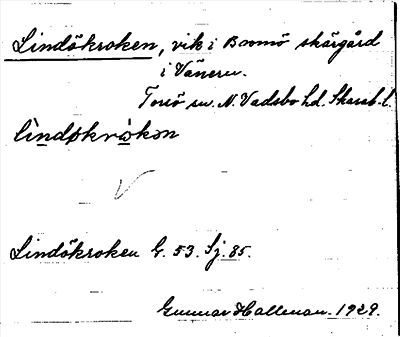 Lindökroken, vik i Bromö skärgård
i Vänern.
Torsö sn. N. Vadsbo hd. Skarab. l.
lìndøkrὼkən
Lindökroken G. 53. Sj. 85.
Gunnar Hallman. 1929.